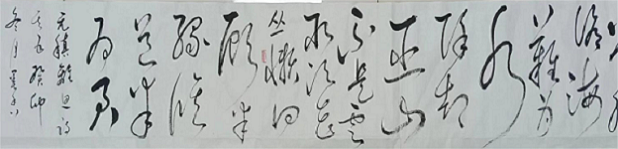 沧海
难为
水
除却
巫山
不是云
取次花
丛懒回
顾半
缘修
道半
缘君
元稹离思诗
癸卯
冬月